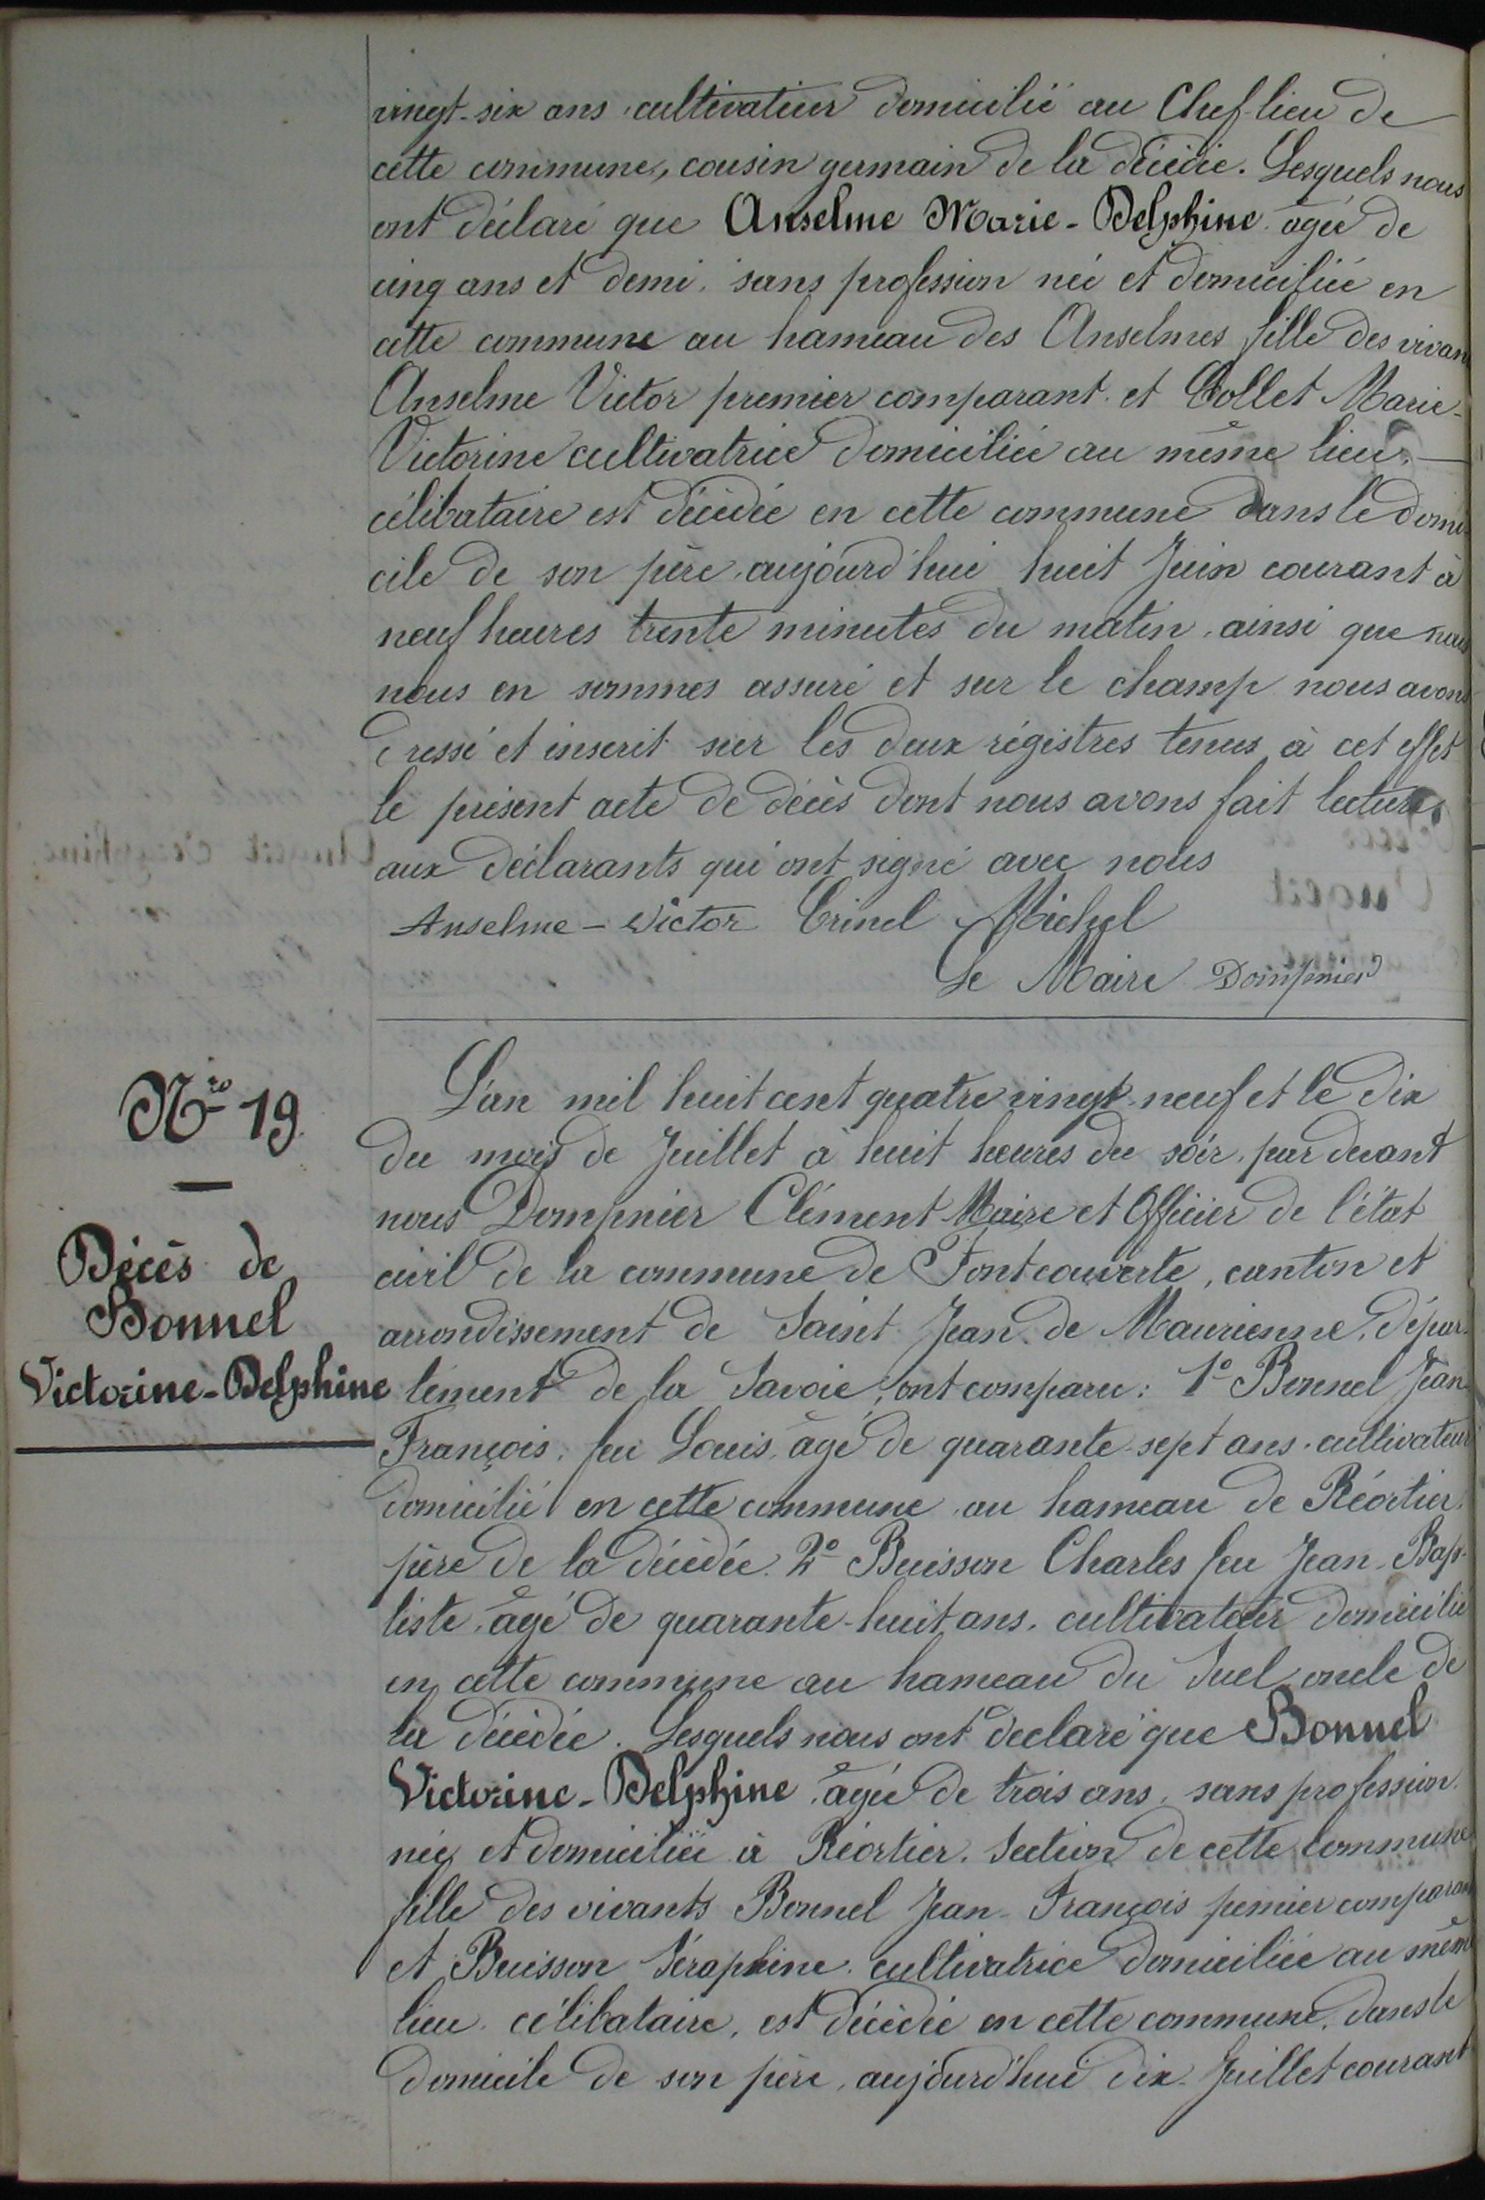 vingt-six ans, cultivateur domicilié au Chef-lieu de
cette commune, cousin germain de la décédée. Lesquels nous
ont déclaré que Anselme Marie-Delphine agée de
cinq ans et demi, sans profession née et domiciliée en
cette commune au hameau des Anselmes fille des vivan
Anselme Victor premier comparant et Collet Marie-
Victorine cultivatrice domiciliée au même lieu,
célibataire est décédée en cette commune dans le domi
cile de son père, aujourd'hui huit Juin courant à
neuf heures trente minutes du matin, ainsi que nous
nous en sommes assuré et sur le champ nous avons
dressé et inscrit sur les deux régistres tenus à cet effet
le présent acte de décès dont nous avons fait lecture
aux déclarants qui ont signé avec nous
Anselme - Victor Trinel Michel
Le Maire Dompnier
N.ro 19
Décès de
Bonnel
Victorine-Delphine
L'an mil huit cent quatre vingt-neuf et le dix
du mois de Juillet à huit heures du soir, par devant
nous Dompnier Clément Maire et Officier de l'état
civil de la commune de Fontcouverte, canton et
arrondissement de Saint Jean de Maurienne, dépar-
tement de la Savoie, ont comparu: 1° Bonnel Jean
François, feu Louis, âgé de quarante-sept ans, cultivateur
domicilié en cette commune au hameau de Réortier,
père de la décédée. 2° Buisson Charles feu Jean-Bap-
tiste, âgé de quarante-huit ans, cultivateur domicilié
en cette commune au hameau du Suel oncle de
la décédée. Lesquels nous ont declaré que Bonnel
Victorine-Delphine, âgée de trois ans, sans profession
née et domiciliée à Réortier, Section de cette commune
fille des vivants Bonnel Jean-François pemier comparan
et Buisson Séraphine, cultivatrice domiciliée au même
lieu, célibataire, est décédée en cette commune, dans le
domicile de son père, aujourd'hui dix Juillet courant